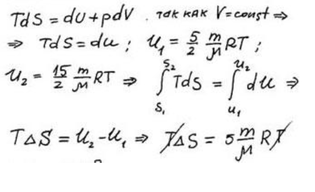 TdS = dU + pdV . так как V=const ⇒
⇒ TdS = du ; U₁ = 5/2 m/μ RT ;
U₂ = 15/2 m/μ RT ⇒ ∫_{S₁}^{S₂} TdS = ∫_{U₁}^{U₂} du ⇒
TΔS = U₂ - U₁ ⇒ TΔS = 5 m/μ RT